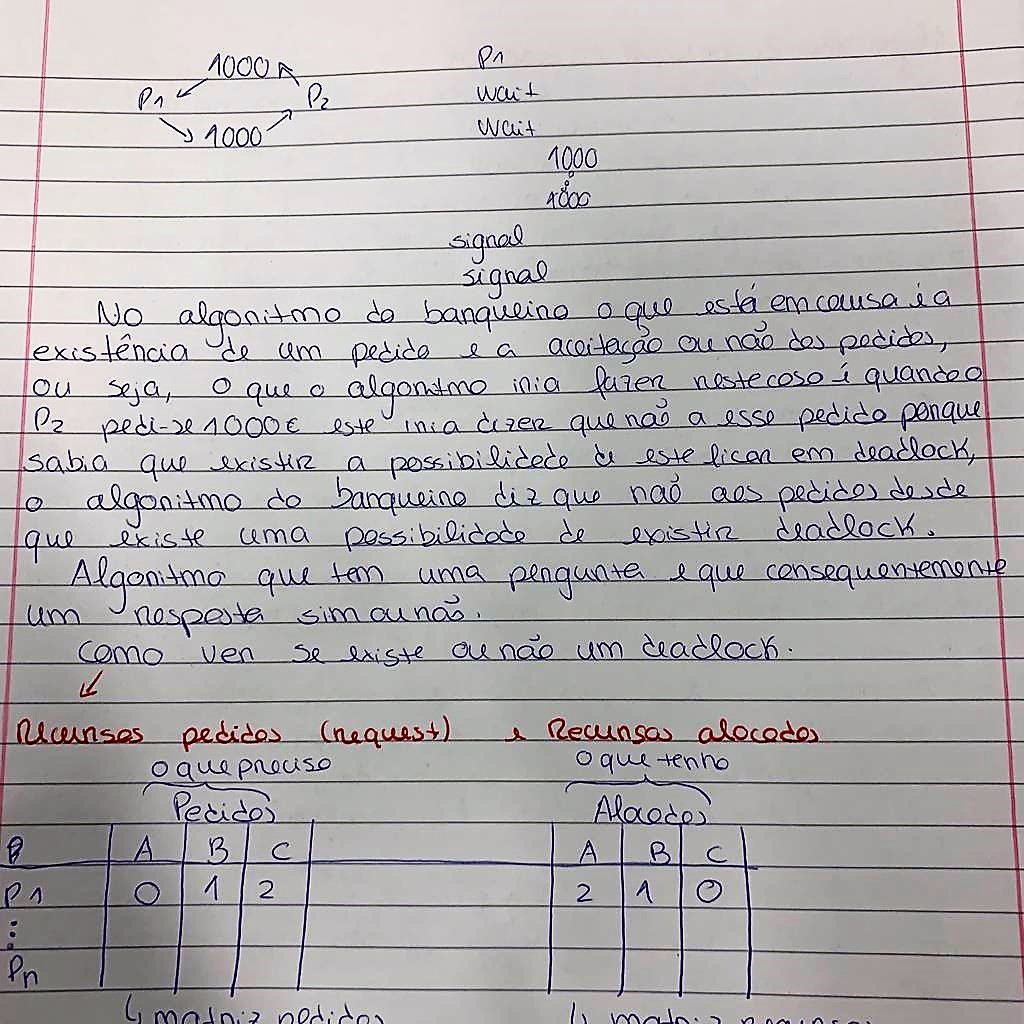 1000 P1
P1 P2 wait
1000 wait
1000
1000
signal
signal
No algoritmo do banqueiro o que está em causa é a
existência de um pedido e a aceitação ou não dos pedidos,
ou seja, o que o algoritmo iria fazer neste caso é quando o
P2 pedi-se 1000€ este iria dizer que não a esse pedido porque
sabia que existir a possibilidade de este ficar em deadlock,
o algoritmo do banqueiro diz que não aos pedidos desde
que existe uma possibilidade de existir deadlock.
Algoritmo que tem uma pergunta e que consequentemente
um resposta sim ou não.
Como ver se existe ou não um deadlock.
Recursos pedidos (request) e Recursos alocados
o que preciso o que tenho
Pedidos Alocados
A B C A B C
P1 0 1 2 2 1 0
Pn
matriz pedidos matriz